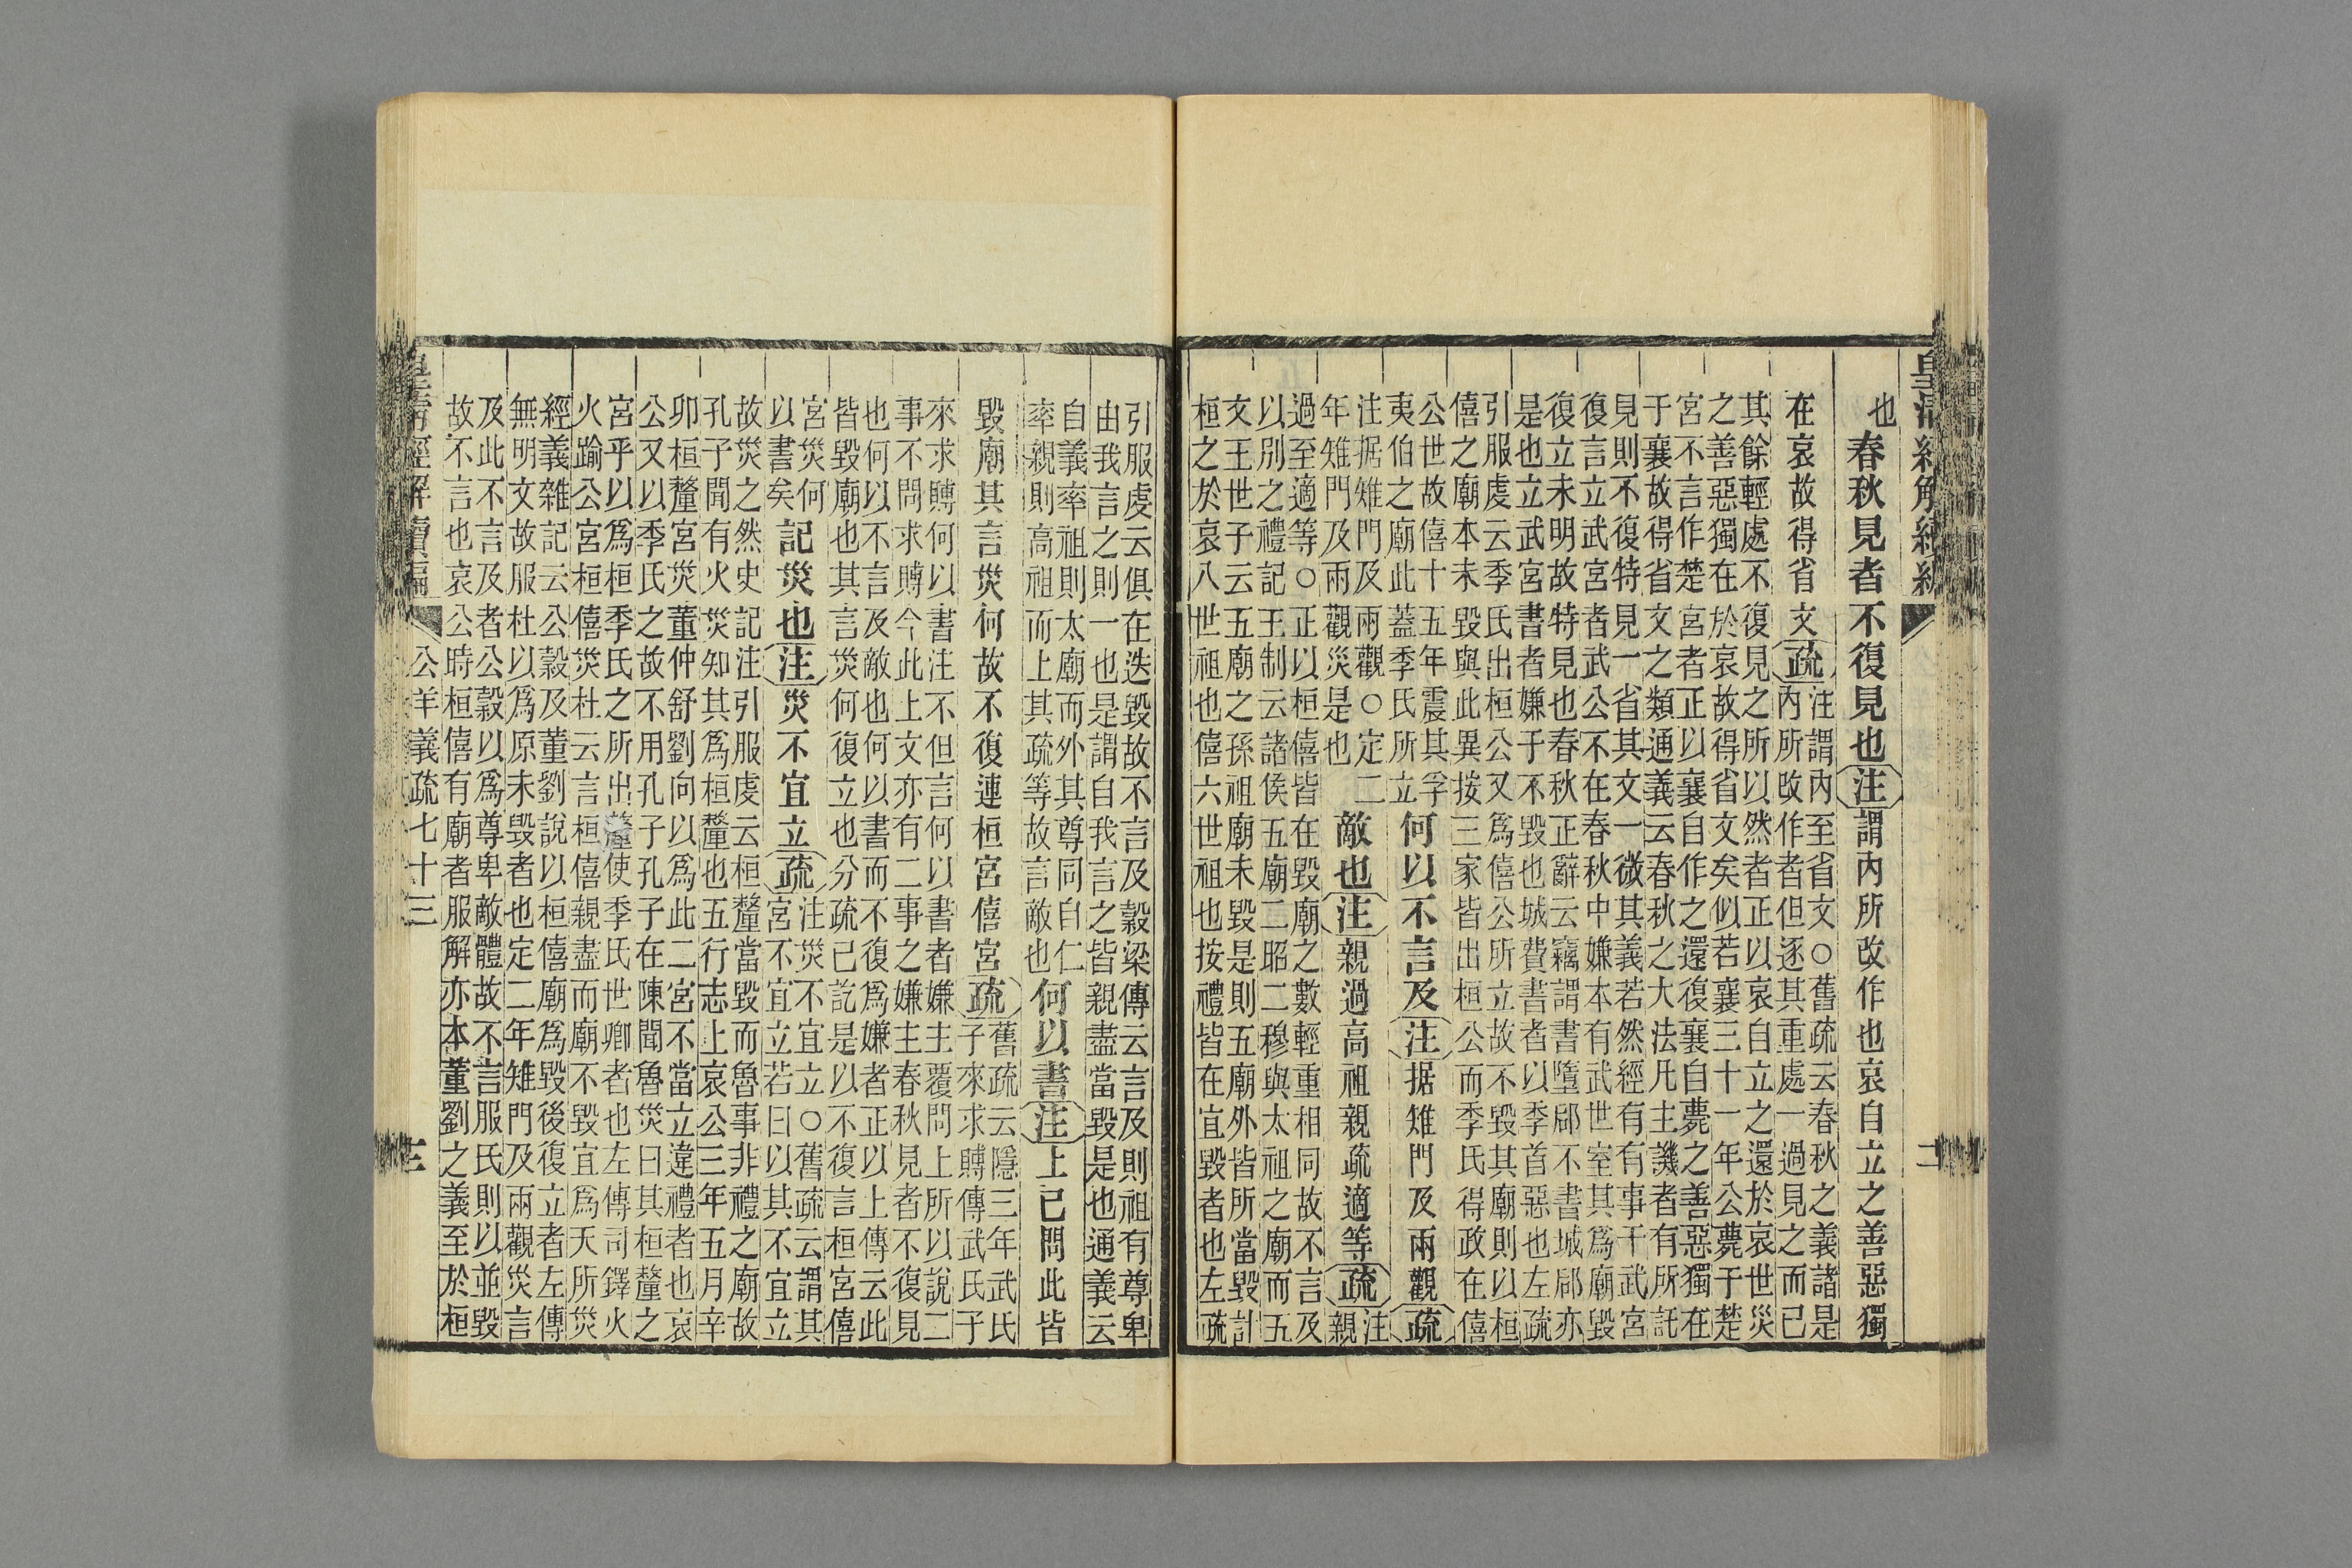 皇清經解續編
二
也春秋見者不復見也注謂內所改作也哀自立之善惡獨
在哀故得省文疏
注謂內至省文○舊疏云春秋之義諸是
內所改作者但逐其重處一過見之而已
其餘輕處不復見之所以然者正以哀自立之還於哀世災
之善惡獨在於哀故得省文矣似若襄三十一年公薨于楚
宮不言作楚宮者正以襄自作之還復襄自薨之善惡獨在
于襄故得省文之類通義云春秋之大法凡主譏者有所託
見則不復特見一省其文一微其義若然經有有事于武宮
復言立武宮者武公不在春秋中嫌本有武世室其爲廟毀
復立未明故特見也春秋正辭云竊謂書墮郈不書城郈亦
是也立武宮書者嫌子不毀也城費書者以季首惡也左疏
引服虔云季氏出桓公又爲僖公所立故不毀其廟則以桓
僖之廟本未毀與此異按三家皆出桓公而季氏得政在僖
公世故僖十五年震其孚
夷伯之廟此蓋季氏所立
何以不言及注据雉門及兩觀疏
注据雉門及兩觀○定二
年雉門及兩觀災是也
敵也注親過高祖親疏適等疏
注
親
過至適等○正以桓僖皆在毀廟之數輕重相同故不言及
以別之禮記王制云諸侯五廟二昭二穆與太祖之廟而五
文王世子云五廟之孫祖廟未毀是則五廟外皆所當毀計
桓之於哀八世祖也僖六世祖也按禮皆在宜毀者也左疏
引服虔云俱在迭毀故不言及穀梁傳云言及則祖有尊卑
由我言之則一也是謂自我言之皆親盡當毀是也通義云
自義率祖則太廟而外其尊同自仁
率親則高祖而上其疏等故言敵也
何以書注上已問此皆
毀廟其言災何故不復連桓宮僖宮疏
舊疏云隱三年武氏
子來求賻傳武氏子
來求賻何以書注不但言何以書者嫌主覆問上所以說二
事不問求賻今此上文亦有二事之嫌主春秋見者不復見
也何以不言及敵也何以書而不復爲嫌者正以上傳云此
皆毀廟也其言災何復立也分疏已訖是以不復言桓宮僖
宮災何
以書矣
記災也注災不宜立疏
注災不宜立○舊疏云謂其
宮不宜立若曰以其不宜立
故災之然史記注引服虔云桓釐當毀而魯事非禮之廟故
孔子聞有火災知其爲桓釐也五行志上哀公三年五月辛
卯桓釐宮災董仲舒劉向以爲此二宮不當立違禮者也哀
公又以季氏之故不用孔子孔子在陳聞魯災曰其桓釐之
宮乎以爲桓季氏之所出釐使季氏世卿者也左傳司鐸火
火踰公宮桓僖災杜云言桓僖親盡而廟不毀宜爲天所災
經義雜記云公穀及董劉說以桓僖廟爲毀後復立者左傳
無明文故服杜以爲原未毀者也定二年雉門及兩觀災言
及此不言及者公穀以爲尊卑敵體故不言服氏則以並毀
故不言也哀公時桓僖有廟者服解亦本董劉之義至於桓
皇清經解續編
公羊義疏七十三
三